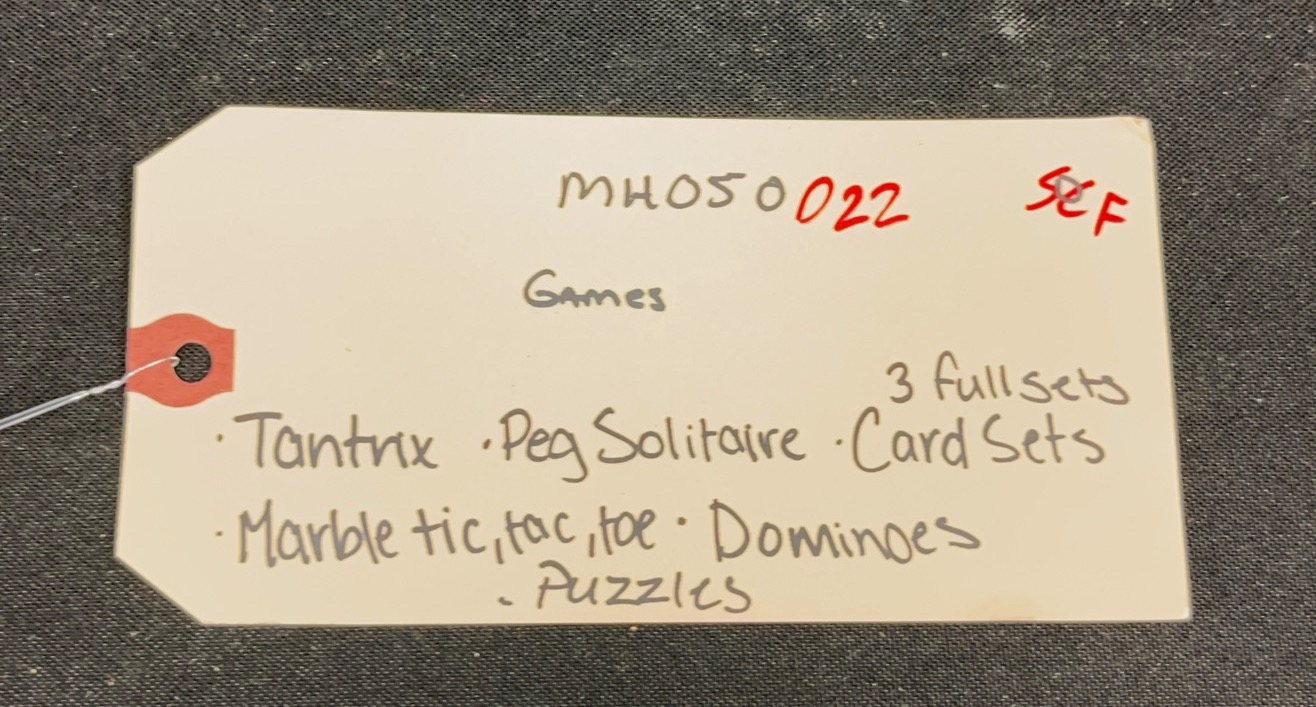 MH050022
Games
3 full sets
· Tantrix · Peg Solitaire · Card Sets
· Marble tic, tac, toe · Dominoes
· Puzzles